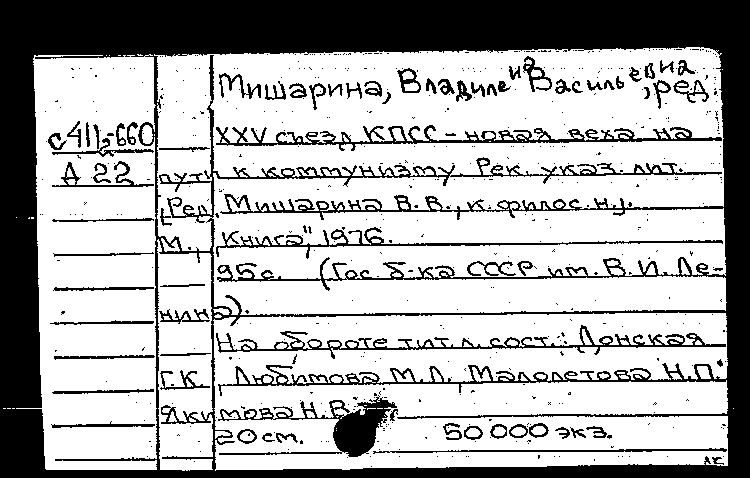 Мишарина, Владилена Васильевна, ред.
с411-660 XXV съезд КПСС – новая веха на
А 22 пути к коммунизму. Рек. указ. лит.
[Ред. Мишарина В.В., к. филос. н.].
М., „Книга", 1976.
95с. (Гос. б-ка СССР им. В.И. Ле-
нина).
На обороте тит. л. сост.: Донская
Г.К., Любимова М.Л., Малолетова Н.П.
Якимова Н.В.
20 см. 50 000 экз.